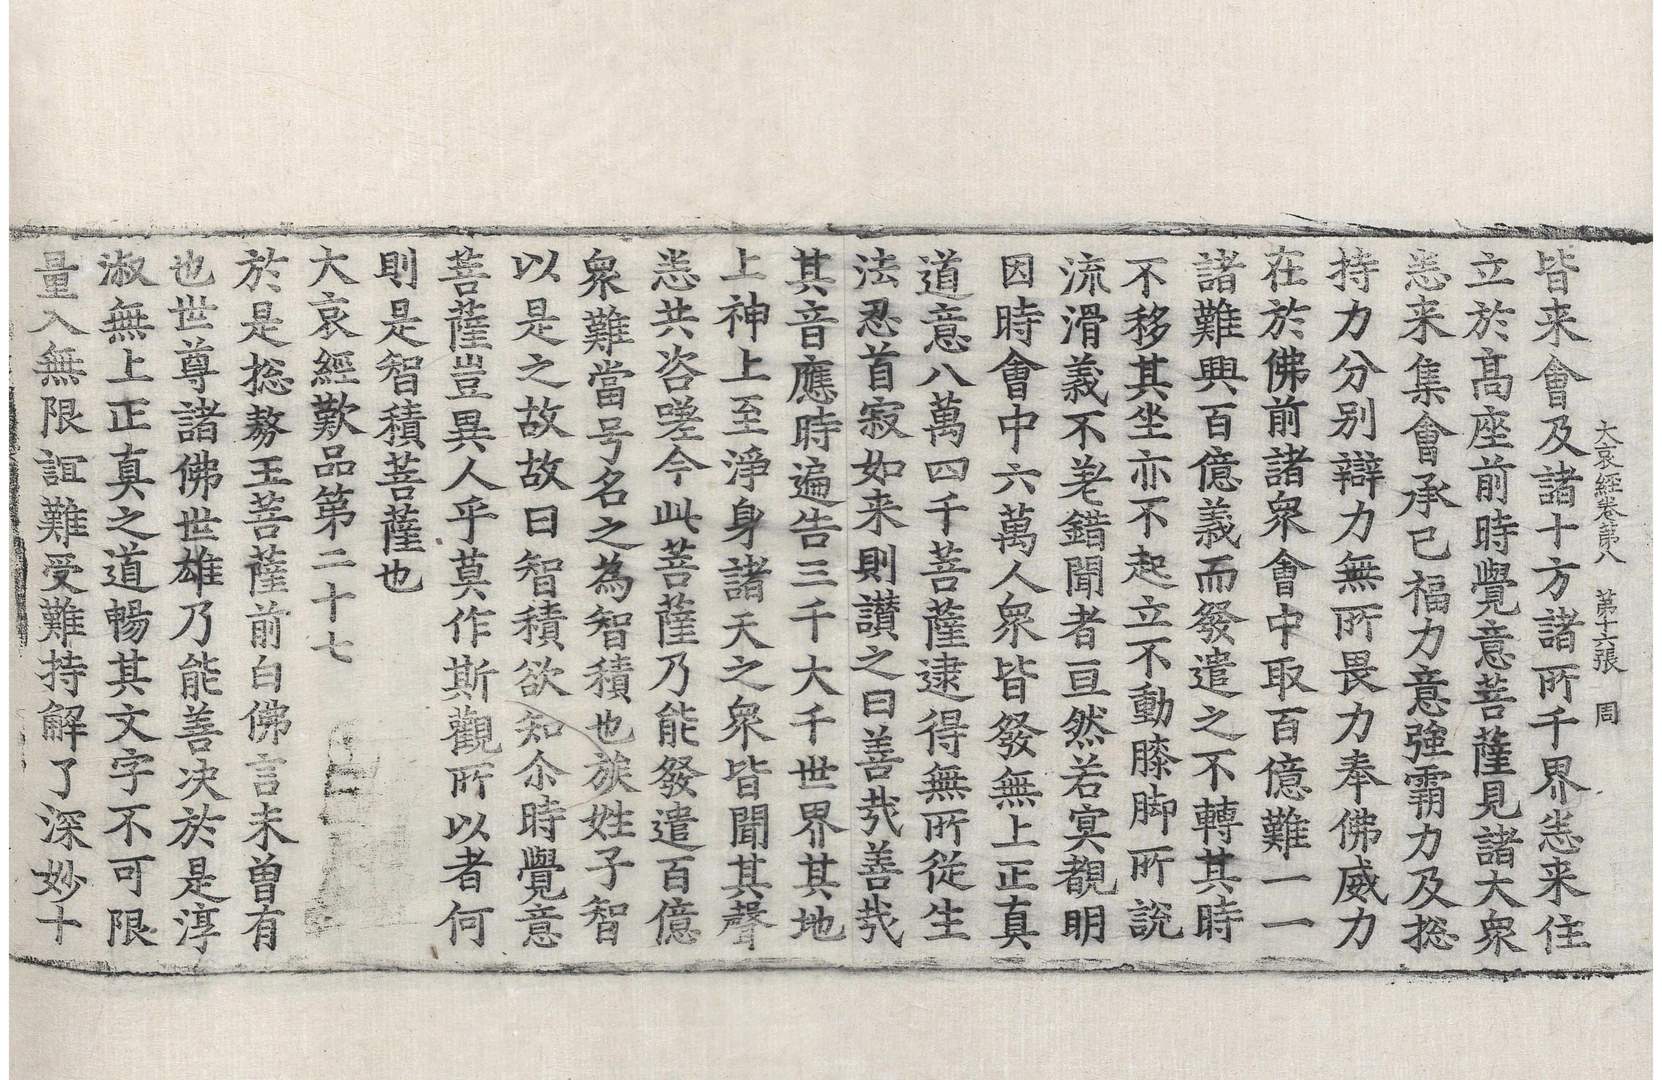 大哀經卷第八　第十六張　周
皆来會及諸十方諸所千界悉来住
立於髙座前時覺意菩薩見諸大衆
悉来集會承已福力意強霸力及揔
持力分别辯力無所畏力奉佛威力
在於佛前諸衆會中取百億難一一
諸難興百億義而發遣之不轉其時
不移其坐亦不起立不動膝脚所說
流滑義不差錯聞者亘然若㝠覩明
因時會中六萬人衆皆發無上正真
道意八萬四千菩薩逮得無所從生
法忍首寂如来則讃之曰善㢤善㢤
其音應時遍告三千大千世界其地
上神上至淨身諸天之衆皆聞其聲
悉共咨嗟今此菩薩乃能發遣百億
衆難當号名之為智積也族姓子智
以是之故故曰智積欲知尒時覺意
菩薩豈異人乎莫作斯觀所以者何
則是智積菩薩也
大哀經歎品第二十七
於是揔勢王菩薩前白佛言未曾有
也世尊諸佛世雄乃能善决於是淳
淑無上正真之道暢其文字不可限
量入無限誼難受難持解了深妙十